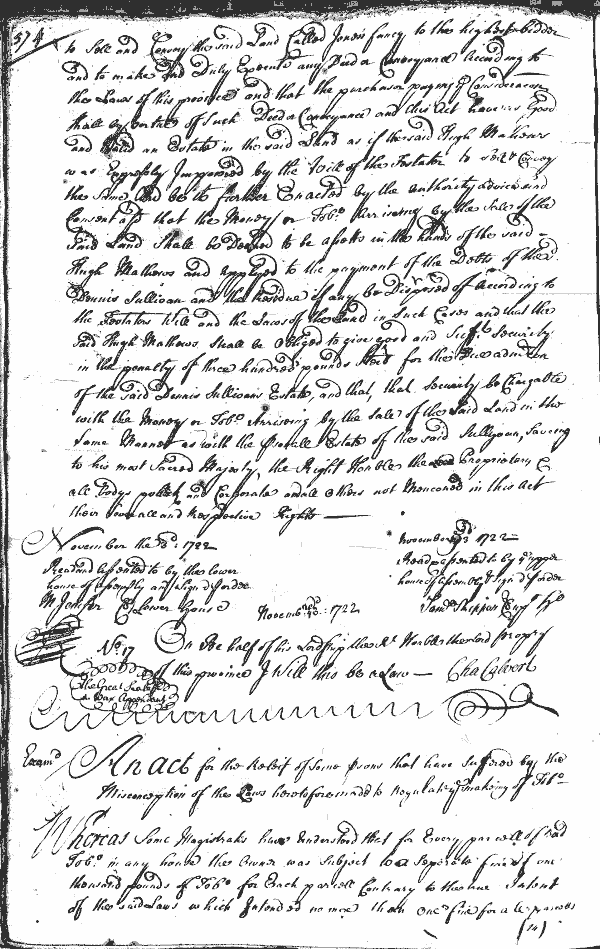 574
to Sell and Convey the said Land Called Jones's fancy to the highest bidder
and to make and Duly Execute any Deed or Conveyance According to
the Laws of this province and that the purchasor paying Consideracon
shall by vertue of such Deed or Conveyance and this Act have as Good
and Valid an Estate in the said Land as if the said Hugh Mathews
was Expressly Impowred by the Will of the Testator to Sell & Convey
the same And be it further Enacted by the Authority advice and
Consent afsd that the Money or Tobo Arrissing by the Sale of the
Said Land Shall be Deemed to be assetts in the hands of the said
Hugh Mathews and Applyed to the payment of the Debts of the sd
Dennis Sullivan and the Residue if any be Disposed of According to
the Testators Will and the Laws of the Land in Such Cases and that the
Said Hugh Mathews Shall be Obliged to give good and Sufft Security
in the penalty of three hundred pounds Sterl for the Due admcon
of the said Dennis Sullivans Estate, and that, that Security be Chargable
with the Money or Tobo Arrissing by the Sale of the said Land in the
same Manner as with the psonall Estate of the said Sullivan, Saveing
to his most Sacred Majesty, the Right Honble the Lord Proprietary &
all bodys pollitk and Corporate and all others not Menconed in this Act
their Severall and Respective Rights
November the 3d: 1722
Read and assented to by the lower
house of assembly and Signd p order
M Jenifer Cl Lower House
November 3d 1722
Read and assented to by ye upper
house of assembly & Signd p order
Saml Skippon Cl up Ho
November: 1722
On behalf of his Lordship the Rt Honble the Lord propry
of this province I Will this be a Law Cha Calvert
No. 17
The Great Seal
in Wax Appendent
Examd An act for the Releif of some psons that have suffered by the
Misconception of the Laws heretofore made to Regulate ye making of Tobo
Whereas Some Magistrates have understood that for Every parcell of bad
Tobo in any house the Owner was Subject to a Seperate fine of one
thousand pounds of Tobo for Each parcell Contrary to the true Intent
of the said Laws which Intended no more than one fine for all parcells
(in)